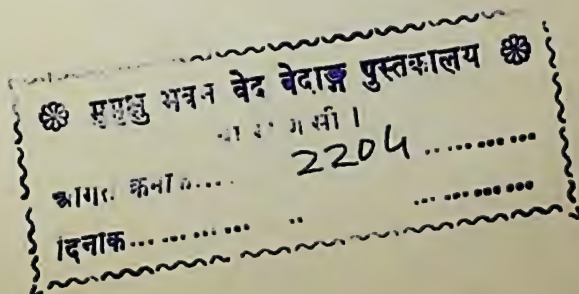 ❀ मुमुक्षु भवन वेद वेदाङ्ग पुस्तकालय ❀
वाराणसी ।
आगत क्रमांक.... 2204 ...........
दिनांक............ .. .............